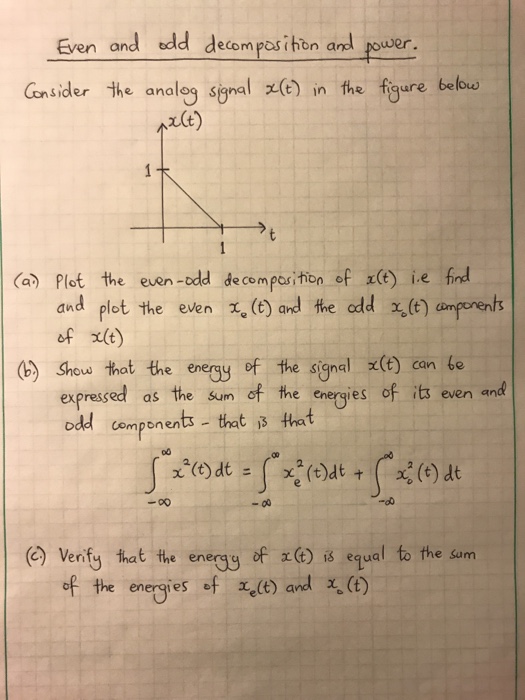 Even and odd decomposition and power.
Consider the analog signal x(t) in the figure below
x(t)
1
t
1
(a) Plot the even-odd decomposition of x(t) i.e find
and plot the even xₑ(t) and the odd xₒ(t) components
of x(t)
(b) Show that the energy of the signal x(t) can be
expressed as the sum of the energies of its even and
odd components - that is that
∫_{-∞}^{∞} x²(t) dt = ∫_{-∞}^{∞} xₑ²(t) dt + ∫_{-∞}^{∞} xₒ²(t) dt
(c) Verify that the energy of x(t) is equal to the sum
of the energies of xₑ(t) and xₒ(t)